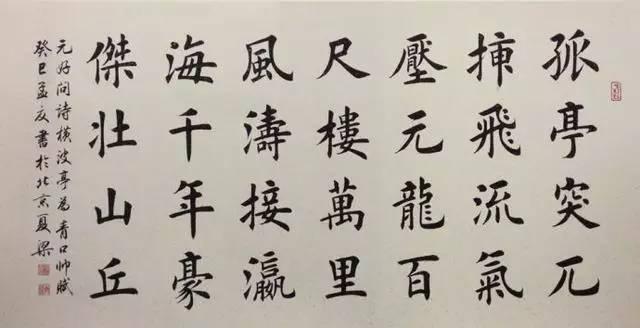 孤亭突兀
挿飛流氣
壓元龍百
尺樓萬里
風濤接瀛
海千年豪
傑壮山丘
元好问詩橫波亭为青口帅賦
癸巳孟夏書於北京夏梁